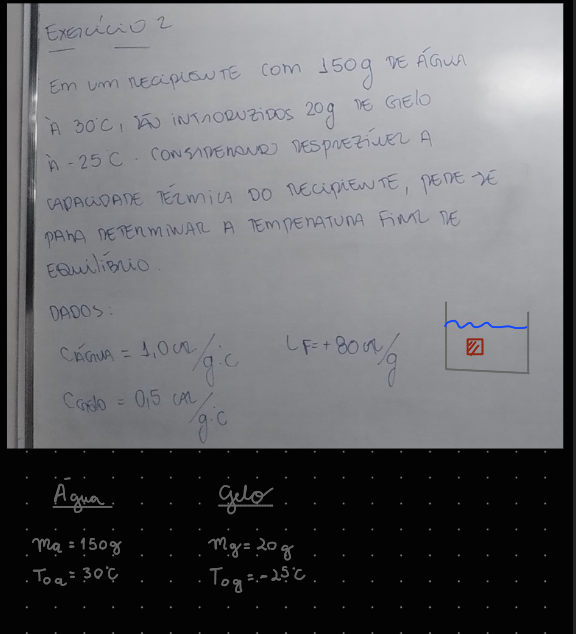 EXERCÍCIO 2
EM UM RECIPIENTE COM 150g DE ÁGUA
À 30°C, SÃO INTRODUZIDOS 20g DE GELO
À -25°C. CONSIDERANDO DESPREZÍVEL A
CAPACIDADE TÉRMICA DO RECIPIENTE, PEDE-SE
PARA DETERMINAR A TEMPERATURA FINAL DE
EQUILÍBRIO.
DADOS:
CÁGUA = 1,0 cal/g·C LF = +80 cal/g
CGELO = 0,5 cal/g·C
Água Gelo
ma = 150g mg = 20g
Toa = 30°C Tog = -25°C